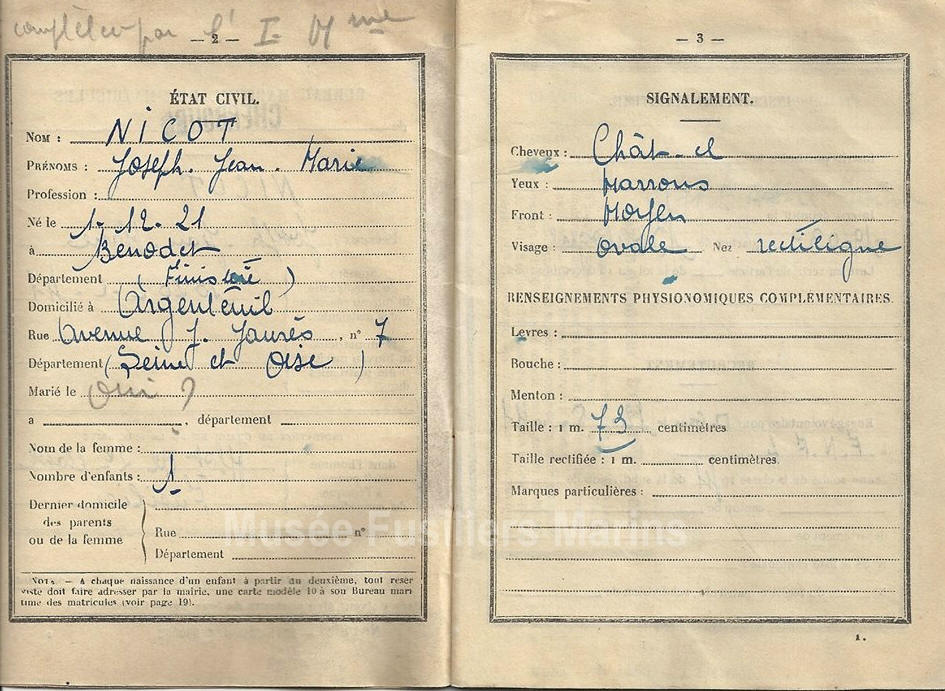 complèter par l'I. M me
— 2 —
ÉTAT CIVIL.
NOM : NICOT
PRÉNOMS : Joseph. Jean. Marie
Profession :
Né le 1-12-21
à Benodet
Département (Finistère)
Domicilié à Argenteuil
Rue Avenue J. Jaurès, n° 7
Département (Seine et Oise)
Marié le oui ?
a , département
Nom de la femme :
Nombre d'enfants : 1
Dernier domicile
des parents
ou de la femme
Rue n°
Département
NOTA. — A chaque naissance d'un enfant à partir du deuxième, tout réser
viste doit faire adresser par la mairie, une carte modèle 10 à son Bureau mari
time des matricules (voir page 19).
— 3 —
SIGNALEMENT.
Cheveux : Chât-
Yeux : Marrons
Front : Moyen
Visage : ovale Nez rectiligne
RENSEIGNEMENTS PHYSIONOMIQUES COMPLÉMENTAIRES.
Levres :
Bouche :
Menton :
Taille : 1 m. 73 centimètres
Taille rectifiée : 1 m. centimètres.
Marques particulières :
1.
Musée Fusiliers Marins